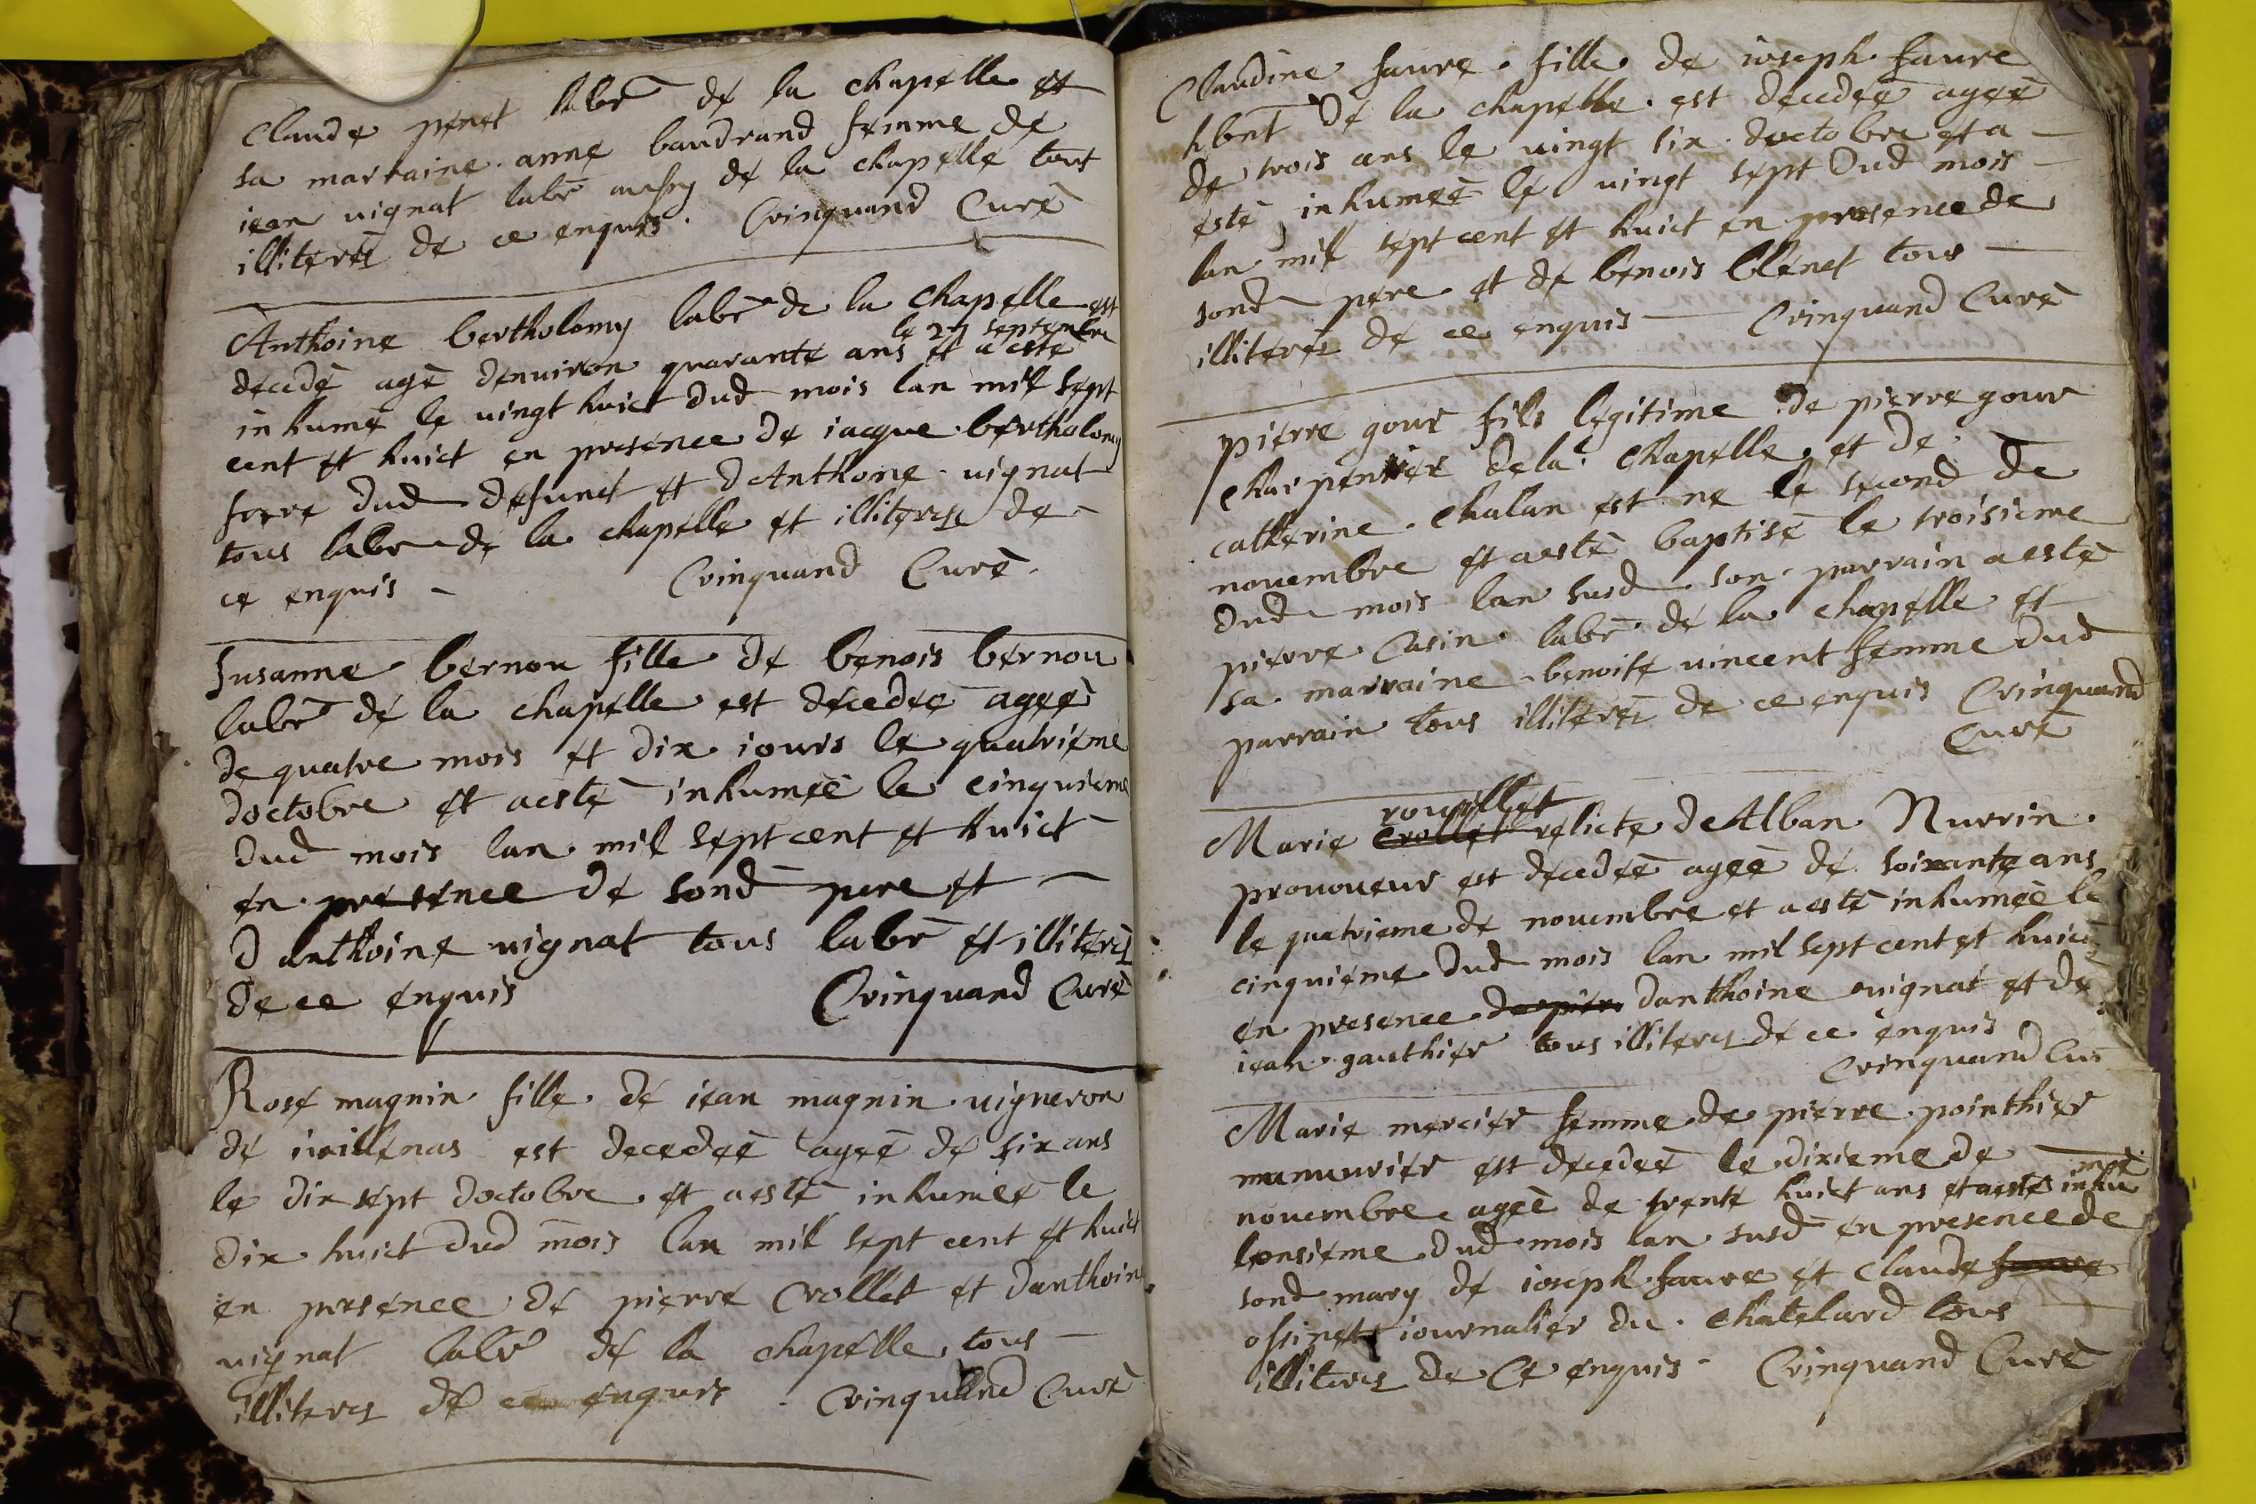 Claude penet labr de la chapelle et
sa marraine anne baudrand femme de
iean uignat labr aussy de la chapelle tous
illiterés de ce enquis. Crinquand Curé
Anthoine bertholomy labr de la Chapelle est
le 27 septembre
decedé agé denuiron quarante ans et a esté
inhumé le uingt huict dud mois lan mil sept
cent et huict en presence de iacque bertholomy
frere dud defunct et dAnthoine uignat
tous labr de la chapelle et illiteres de
ce enquis Crinquand Curé.
Susanne bernou fille de benois bernou
labr de la chapelle est decedeé ageé
de quatre mois et dix iours le quatrieme
doctobre et aesté inhumeé le cinquieme
dud mois lan mil sept cent et huict
en presence de sond pere et
d anthoine uignat tous labr et illiterés
de ce enquis Crinquand Curé
Rose magnin fille de iean magnin uigneron
de est decedeé ageé de six ans
le dix sept doctobre et aesté inhumeé le
dix huict dud mois lan mil sept cent et huict
en presence de pierre Crollet et danthoine
uignat labr de la chapelle tous
illiteres de ce enquis. Crinquand Curé
Claudine faure fille de ioseph faure
hbnt de la chapelle est decedeé ageé
de trois ans le uingt six doctobre et a
esté inhumeé le uingt sept dud mois
lan mil sept cent et huict en presence de
sond pere et de benois blenet tous
illiterés de ce enquis Crinquand Curé
pierre gour fils legitime de pierre gour
charpentier dela Chapelle et de
catherine chalan est ne le second de
nouembre et aesté baptisé le troisieme
dud mois lan susd son parrain aesté
pierre Casin labr de la chapelle et
sa marraine benoite uincent femme dud
parrain tous illiterés de ce enquis Crinquand
Curé
rouillet
Marie crollet relicte de Alban Nurrin
prouoyeur est decedeé ageé de soixante ans
le quatrieme de nouembre et aesté inhumeé le
cinquieme dud mois lan mil sept cent et huict
en presence de pier danthoine uignat et de
iean gauthier tous illiteres de ce enquis
Crinquand Cur
Marie mercier femme de pierre pointhier
manuurier est decedeé le dixieme de
nouembre ageé de trente huict ans et aesté inhu
meé
lonsieme dud mois lan susd en presence de
sond mary de ioseph faure et claude faure
ossinet iournalier du chatelard tous
illiteres de Ce enquis Crinquand Curé